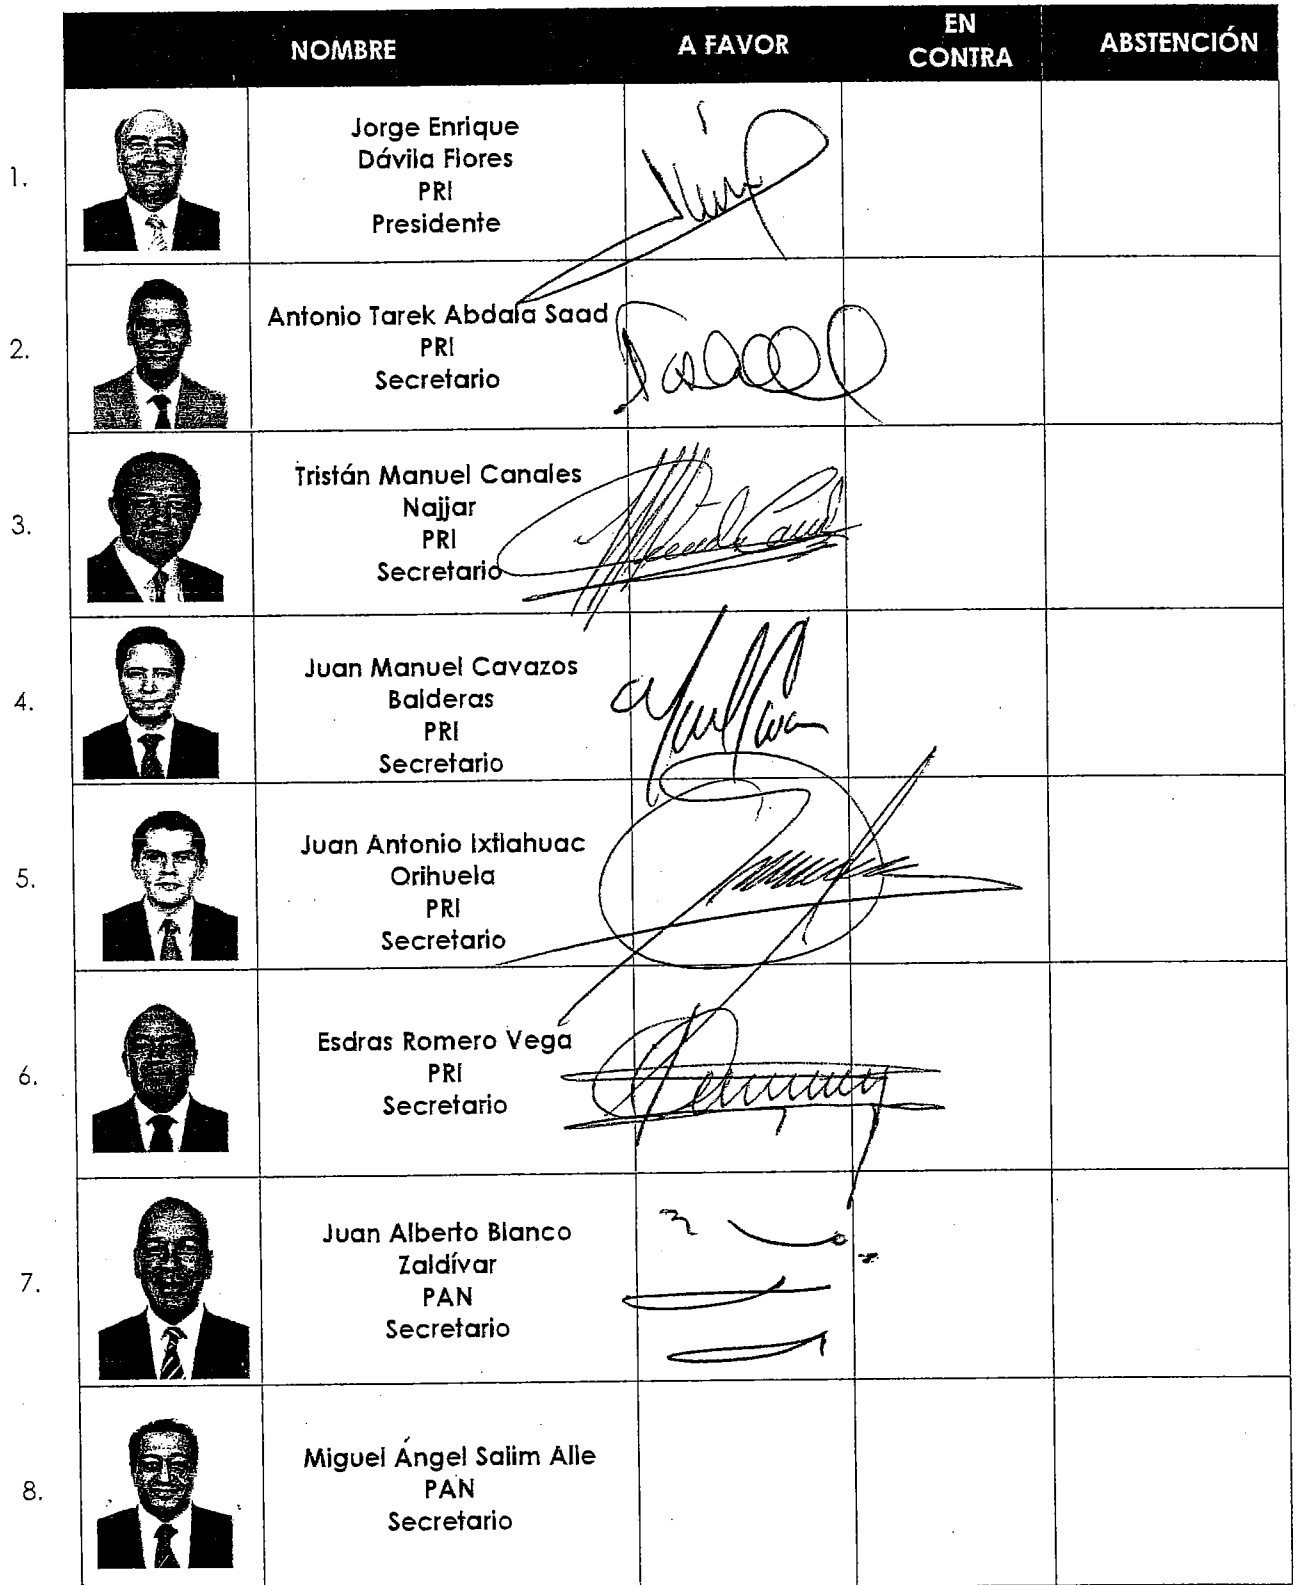 NOMBRE
A FAVOR
EN
CONTRA
ABSTENCIÓN
1.
Jorge Enrique
Dávila Flores
PRI
Presidente
2.
Antonio Tarek Abdala Saad
PRI
Secretario
3.
Tristán Manuel Canales
Najjar
PRI
Secretario
4.
Juan Manuel Cavazos
Balderas
PRI
Secretario
5.
Juan Antonio Ixtlahuac
Orihuela
PRI
Secretario
6.
Esdras Romero Vega
PRI
Secretario
7.
Juan Alberto Blanco
Zaldívar
PAN
Secretario
8.
Miguel Ángel Salim Alle
PAN
Secretario